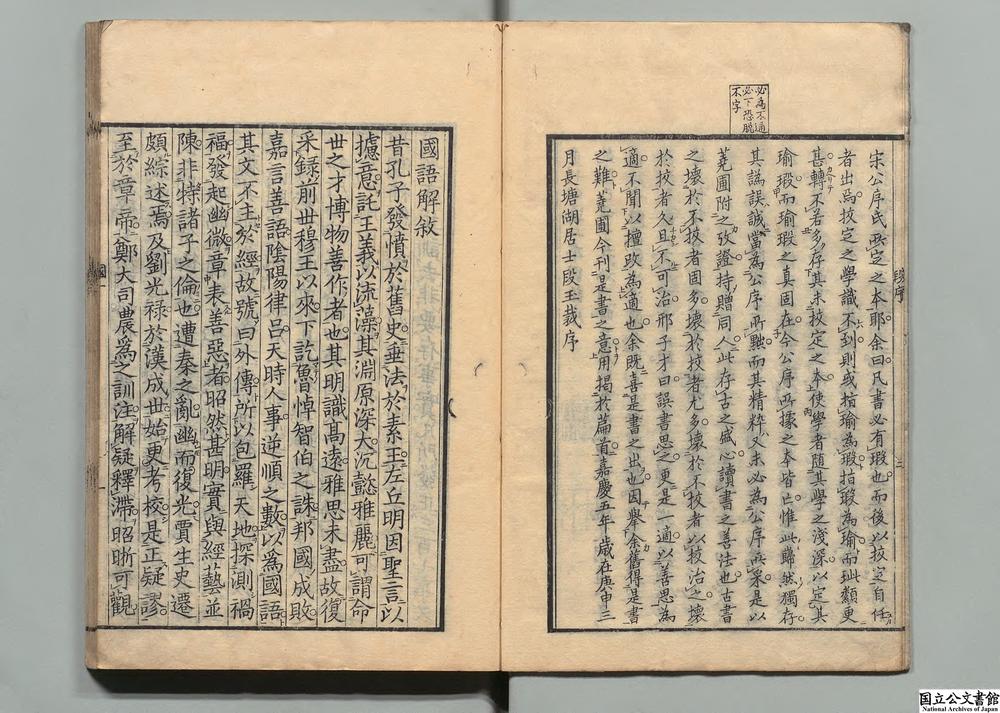 必為不通
必下恐脫
不字
段序
宋公序氏所定之本耶余曰凡書必有瑕也而後以挍定自任
者出焉挍定之學識不到則或指瑜為瑕指瑕為瑜而玼纇更
甚轉不若多存其未挍定之本使學者隨其學之淺深以定其
瑜瑕而瑜瑕之真固在今公序所據之本皆亡惟此巋然獨存
其譌誤誠當為公序所黜而其精粹又未必為公序所采是以
蕘圃附之攷證持贈同人此存古之盛心讀書之善法也古書
之壞於不挍者固多壞於挍者尤多壞於不挍者以挍治之壞
於挍者久且不可治邢子才曰誤書思之更是一適以善思為
適不聞以擅改為適也余既喜是書之出也因舉余舊得是書
之難蕘圃今刊是書之意用揭於篇首嘉慶五年歲在庚申三
月長塘湖居士段玉裁序
三
國語解敘
昔孔子發憤於舊史垂法於素王左丘明因聖言以
攄意託王義以流藻其淵原深大沉懿雅麗可謂命
世之才博物善作者也其明識高遠雅思未盡故復
采録前世穆王以來下訖魯悼智伯之誅邦國成敗
嘉言善語陰陽律呂天時人事逆順之數以為國語
其文不主於經故號曰外傳所以包羅天地探測禍
福發起幽微章表善惡者昭然甚明實與經藝並
陳非特諸子之倫也遭秦之亂幽而復光賈生史遷
頗綜述焉及劉光祿於漢成世始更考校是正疑謬
至於章帝鄭大司農為之訓注解疑釋滯昭晰可觀
國一
一
国立公文書館
National Archives of Japan